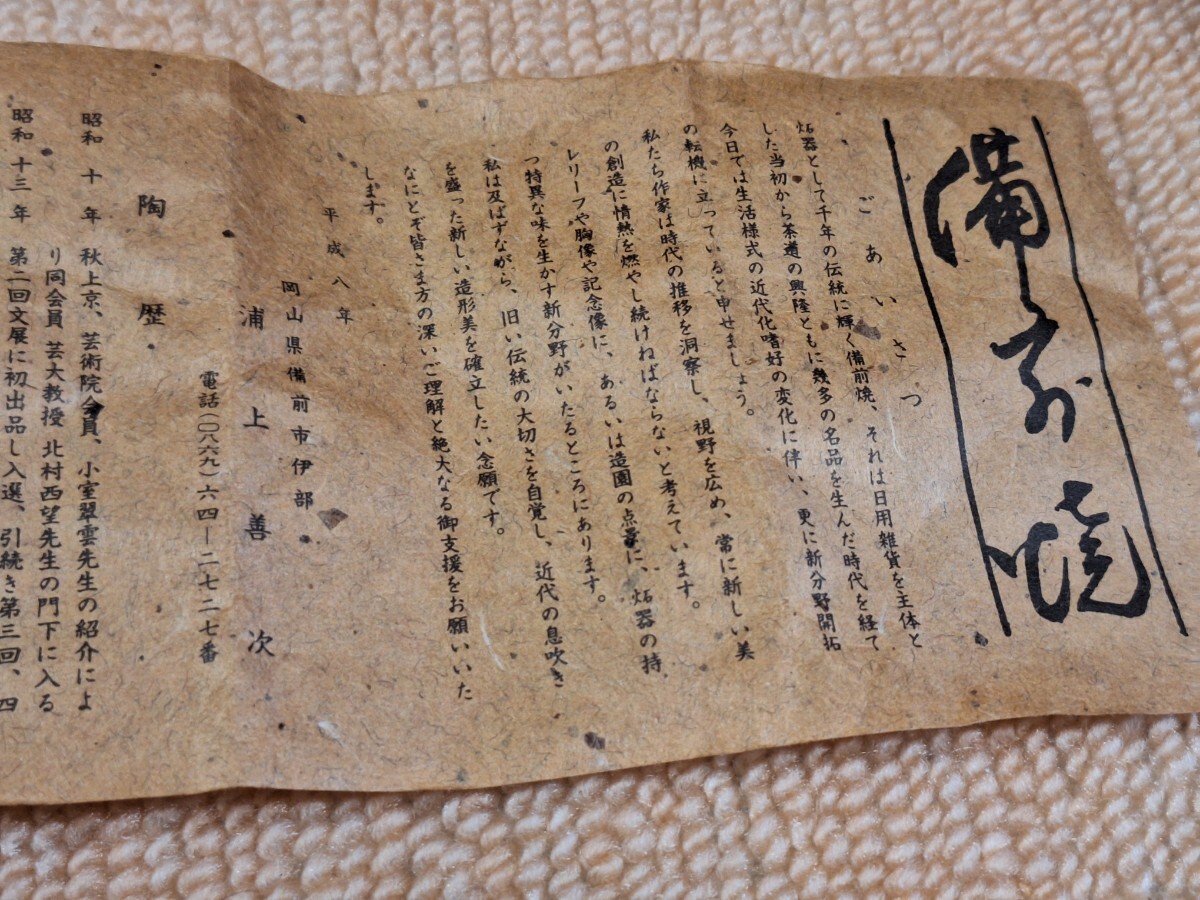 備前焼
ごあいさつ
炻器として千年の伝統に輝く備前焼、それは日用雑貨を主体と
した当初から茶道の興隆ともに幾多の名品を生んだ時代を経て
今日では生活様式の近代化嗜好の変化に伴い、更に新分野開拓
の転機に立っていると申せましょう。
私たち作家は時代の推移を洞察し、視野を広め、常に新しい美
の創造に情熱を燃やし続けねばならないと考えています。
レリーフや胸像や記念像に、あるいは造園の点景に、炻器の持
つ特異な味を生かす新分野がいたるところにあります。
私は及ばずながら、旧い伝統の大切さを自覚し、近代の息吹き
を盛った新しい造形美を確立したい念願です。
なにとぞ皆さま方の深いご理解と絶大なる御支援をお願いいた
します。
平成八年
岡山県備前市伊部
浦上善次
電話(〇八六九)六四―二七二七番
陶歴
昭和十年 秋上京、芸術院会員、小室翠雲先生の紹介によ
り同会員 芸大教授 北村西望先生の門下に入る
昭和十三年 第二回文展に初出品し入選、引続き第三回、四